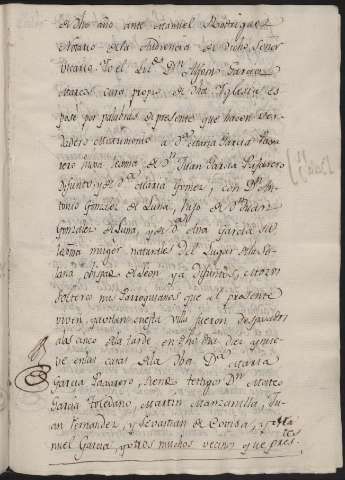 de dho año ante Manuel Rodriguez
Notario de la Audiencia de dicho Señor
Vicario. Yo el Lic.do Dn. Alfonso Garcia
Marcos cura propio de dha Yglesia es
posé por palabras de presente que hacen ver
dadero Matrimonio a D.a Maria Garcia
tero hija lexma de Dn Juan Garcia
difunto, y de D.a Maria Gomez, con Dn An
tonio Gonzalez de Luna, hijo de Dn Juan
Gonzalez de Luna, y de D.a Ana Garcia su
lexma muger naturales del Lugar de la
lana obispado de Leon ya difuntos,
solteros mis Parroquianos que al presente
viven, en esta Villa fueron desposados
a las cinco de la tarde en dho dia diez y nue
ve en las casas de la dha D.a Maria
Garcia siendo testigos Dn Matheo
Garcia Toledano, Martin Manzanilla, Ju
an Fernandez, y Sebastian de y Ma
nuel Garcia, y otros muchos vecinos que pres.tes